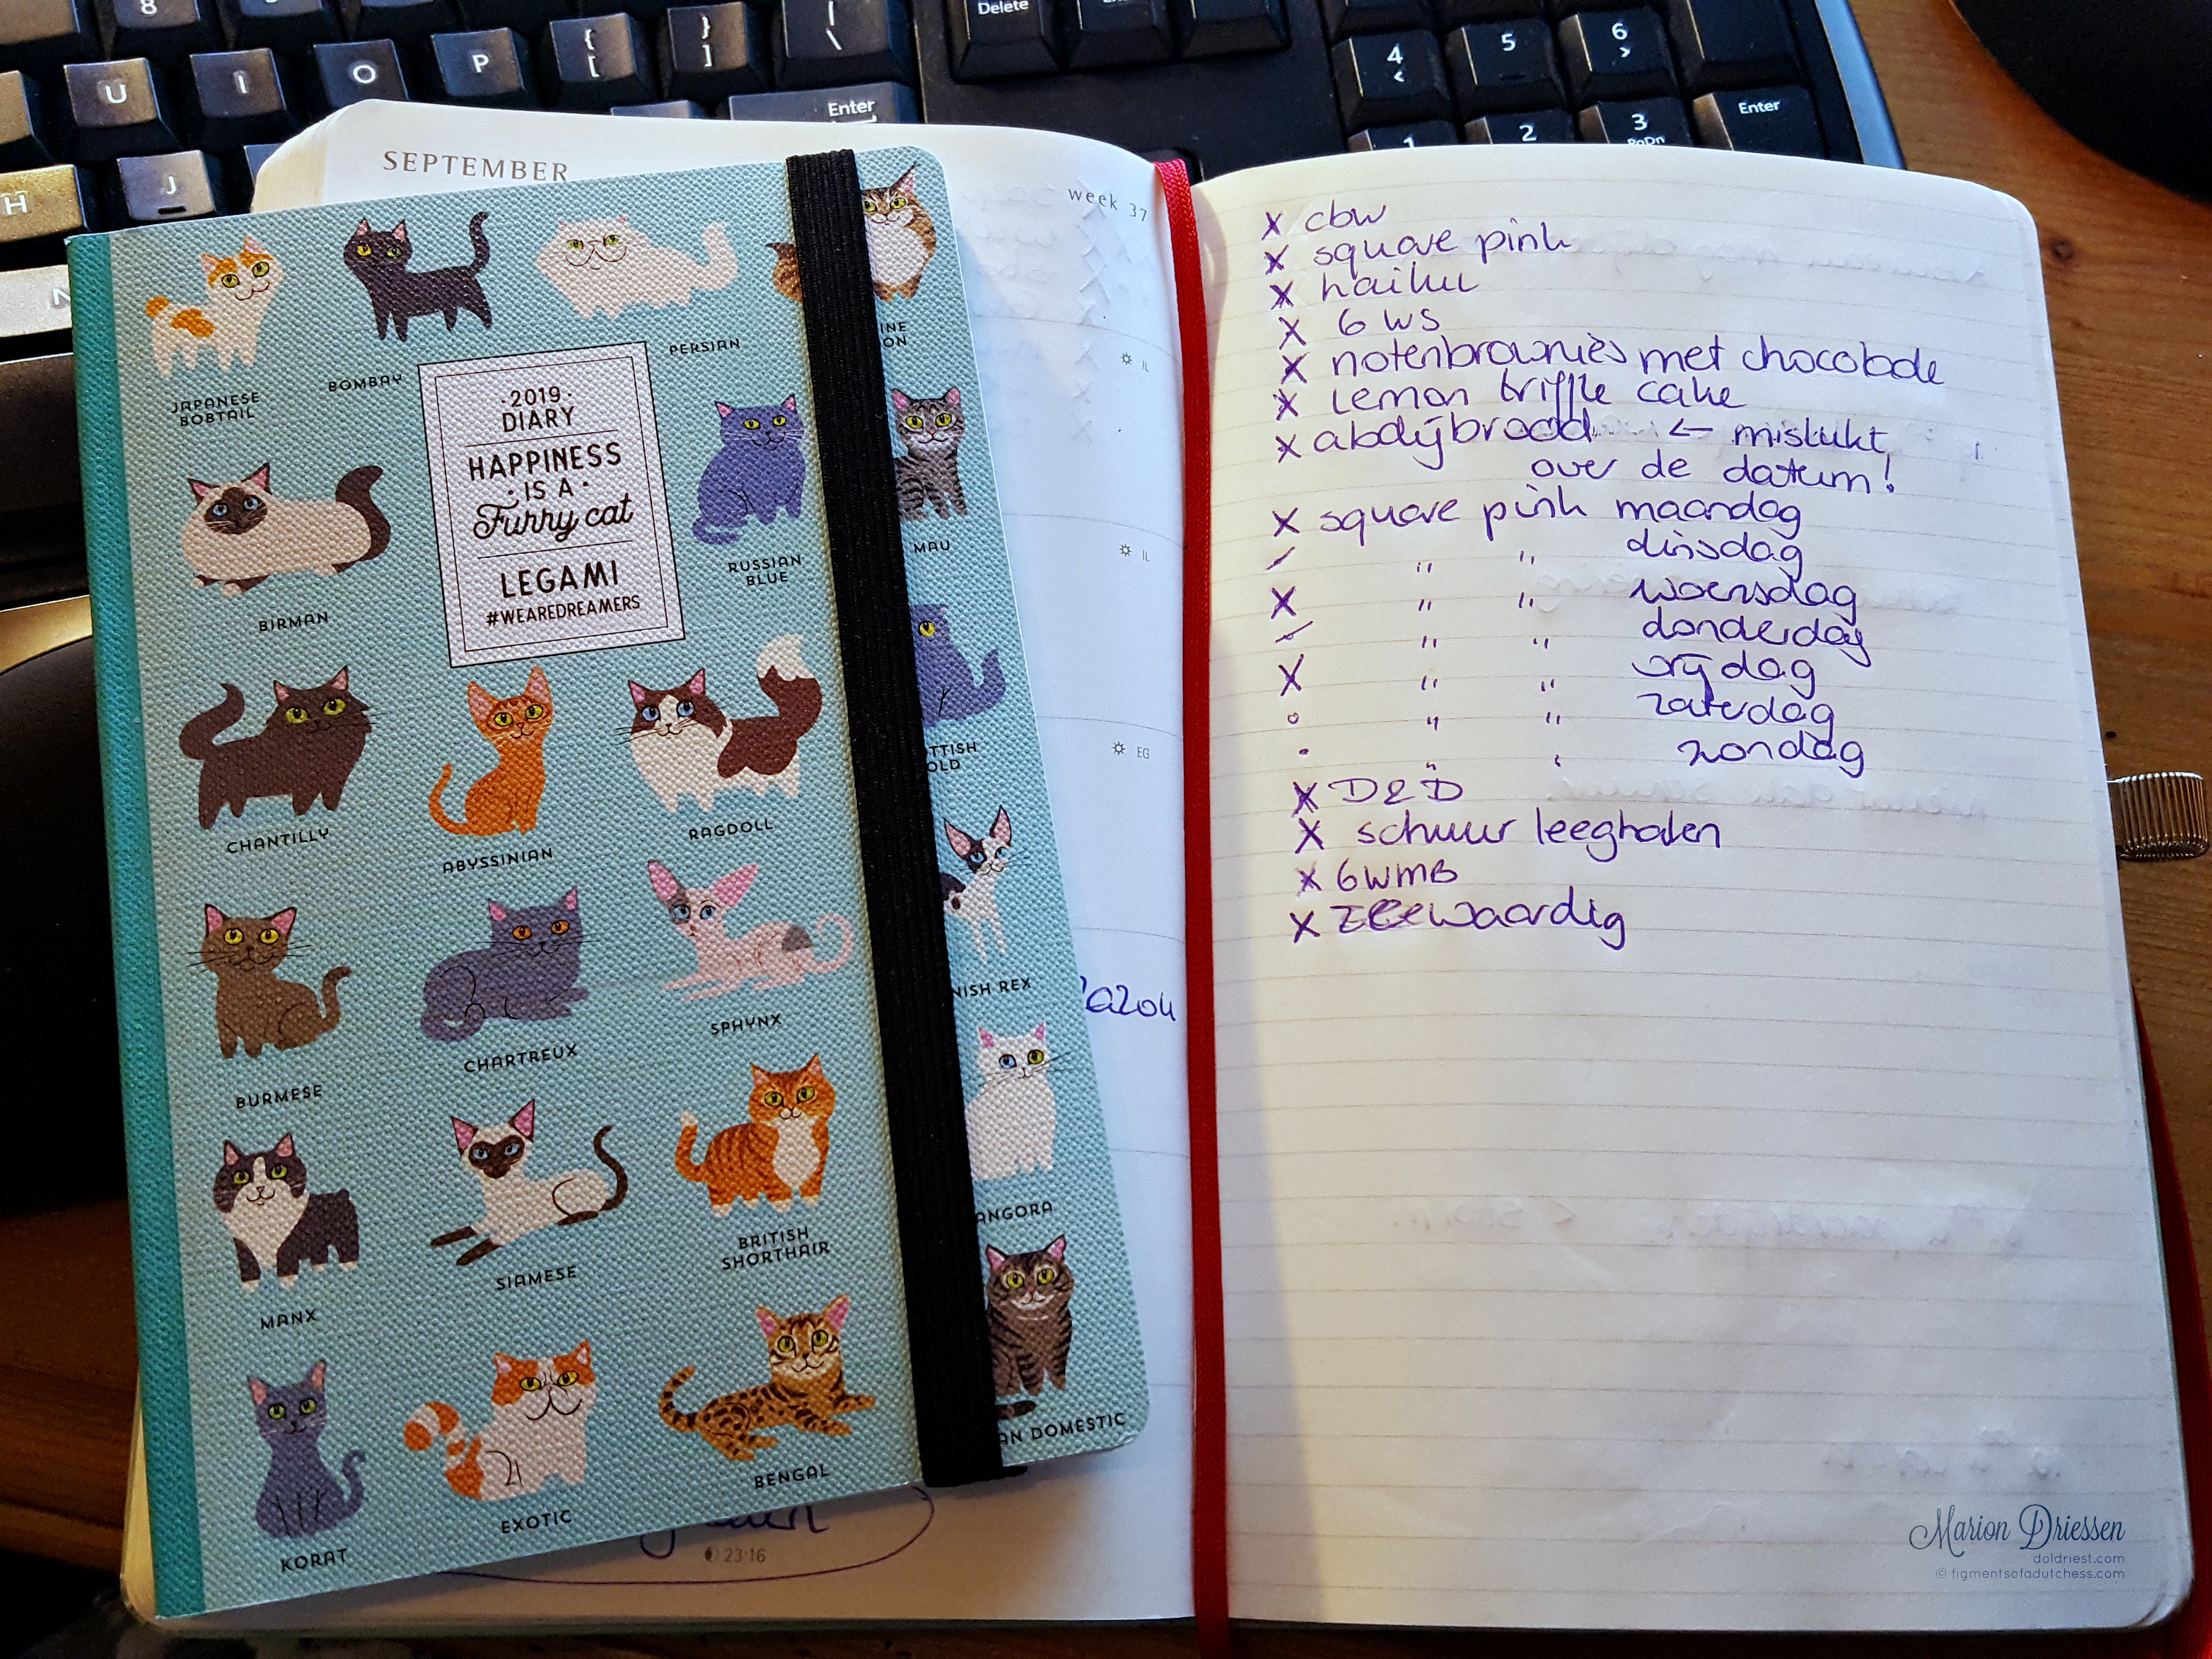 Delete
4
<
5
6
>
8
U
I
O
P
{
[
}
]
|
\
Enter
1
2
3
PgDn
Enter
H
J
N
SEPTEMBER
week 37
IL
IL
EG
JAPANESE
BOBTAIL
BOMBAY
PERSIAN
INE
ON
·2019·
DIARY
HAPPINESS
·IS A·
Furry cat
LEGAMI
#WEAREDREAMERS
BIRMAN
RUSSIAN
BLUE
MAU
CHANTILLY
ABYSSINIAN
RAGDOLL
TTISH
OLD
BURMESE
CHARTREUX
SPHYNX
NISH REX
MANX
SIAMESE
BRITISH
SHORTHAIR
ANGORA
KORAT
EXOTIC
BENGAL
AN DOMESTIC
23:16
x cbw
x square pink
x haiku
x 6 WS
x notenbrownies met chocolade
x Lemon triffle cake
x abdijbrood ← mislukt
over de datum!
x square pink maandag
/ " " dinsdag
x " " woensdag
/ " " donderdag
x " " vrijdag
o " " zaterdag
• " " zondag
x D&D
x schuur leeghalen
x 6WMB
x zeewaardig
Marion Driessen
doldriest.com
© figmentsofadutchess.com